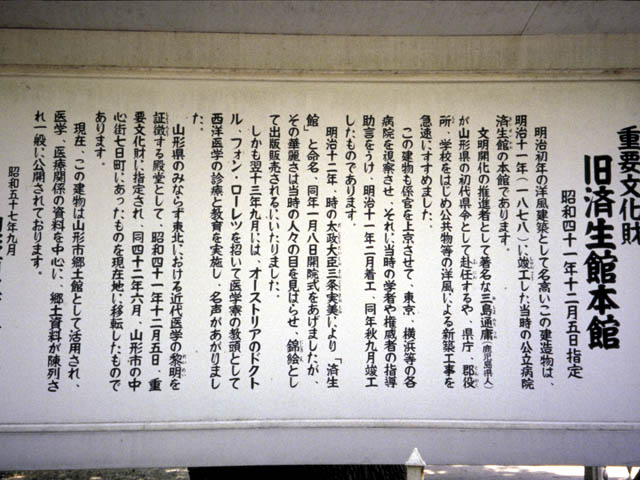 重要文化財
旧済生館本館
昭和四十一年十二月五日指定
明治初年の洋風建築として名高いこの建造物は、
明治十一年(一八七八)に竣工した当時の公立病院
済生館の本館であります。
文明開化の推進者として著名な三島通庸(鹿児島県人)
が山形県の初代県令として赴任するや、県庁、郡役
所、学校をはじめ公共物等の洋風による新築工事を
急速にすすめました。
この建物も係官を上京させて、東京、横浜等の各
病院を視察させ、それに当時の学者や権威者の指導
助言をうけ、明治十一年二月着工、同年秋九月竣工
したものであります。
明治十二年、時の太政大臣三条実美により「済生
館」と命名、同年一月八日開院式をあげましたが、
その華麗さは当時の人々の目を見はらせ、錦絵とし
て出版販売されるにいたりました。
しかも翌十三年九月には、オーストリアのドクト
ル、フォン・ローレツを招いて医学寮の教頭として
西洋医学の診療と教育を実施し、名声があがりまし
た。
山形県のみならず東北における近代医学の黎明を
証徴する殿堂として、昭和四十一年十二月五日、重
要文化財に指定され、同四十二年六月、山形市の中
心街七日町にあったものを現在地に移転したもので
あります。
現在、この建物は山形市郷土館として活用され、
医学、医療関係の資料を中心に、郷土資料が陳列さ
れ一般に公開されております。
昭和五十七年九月